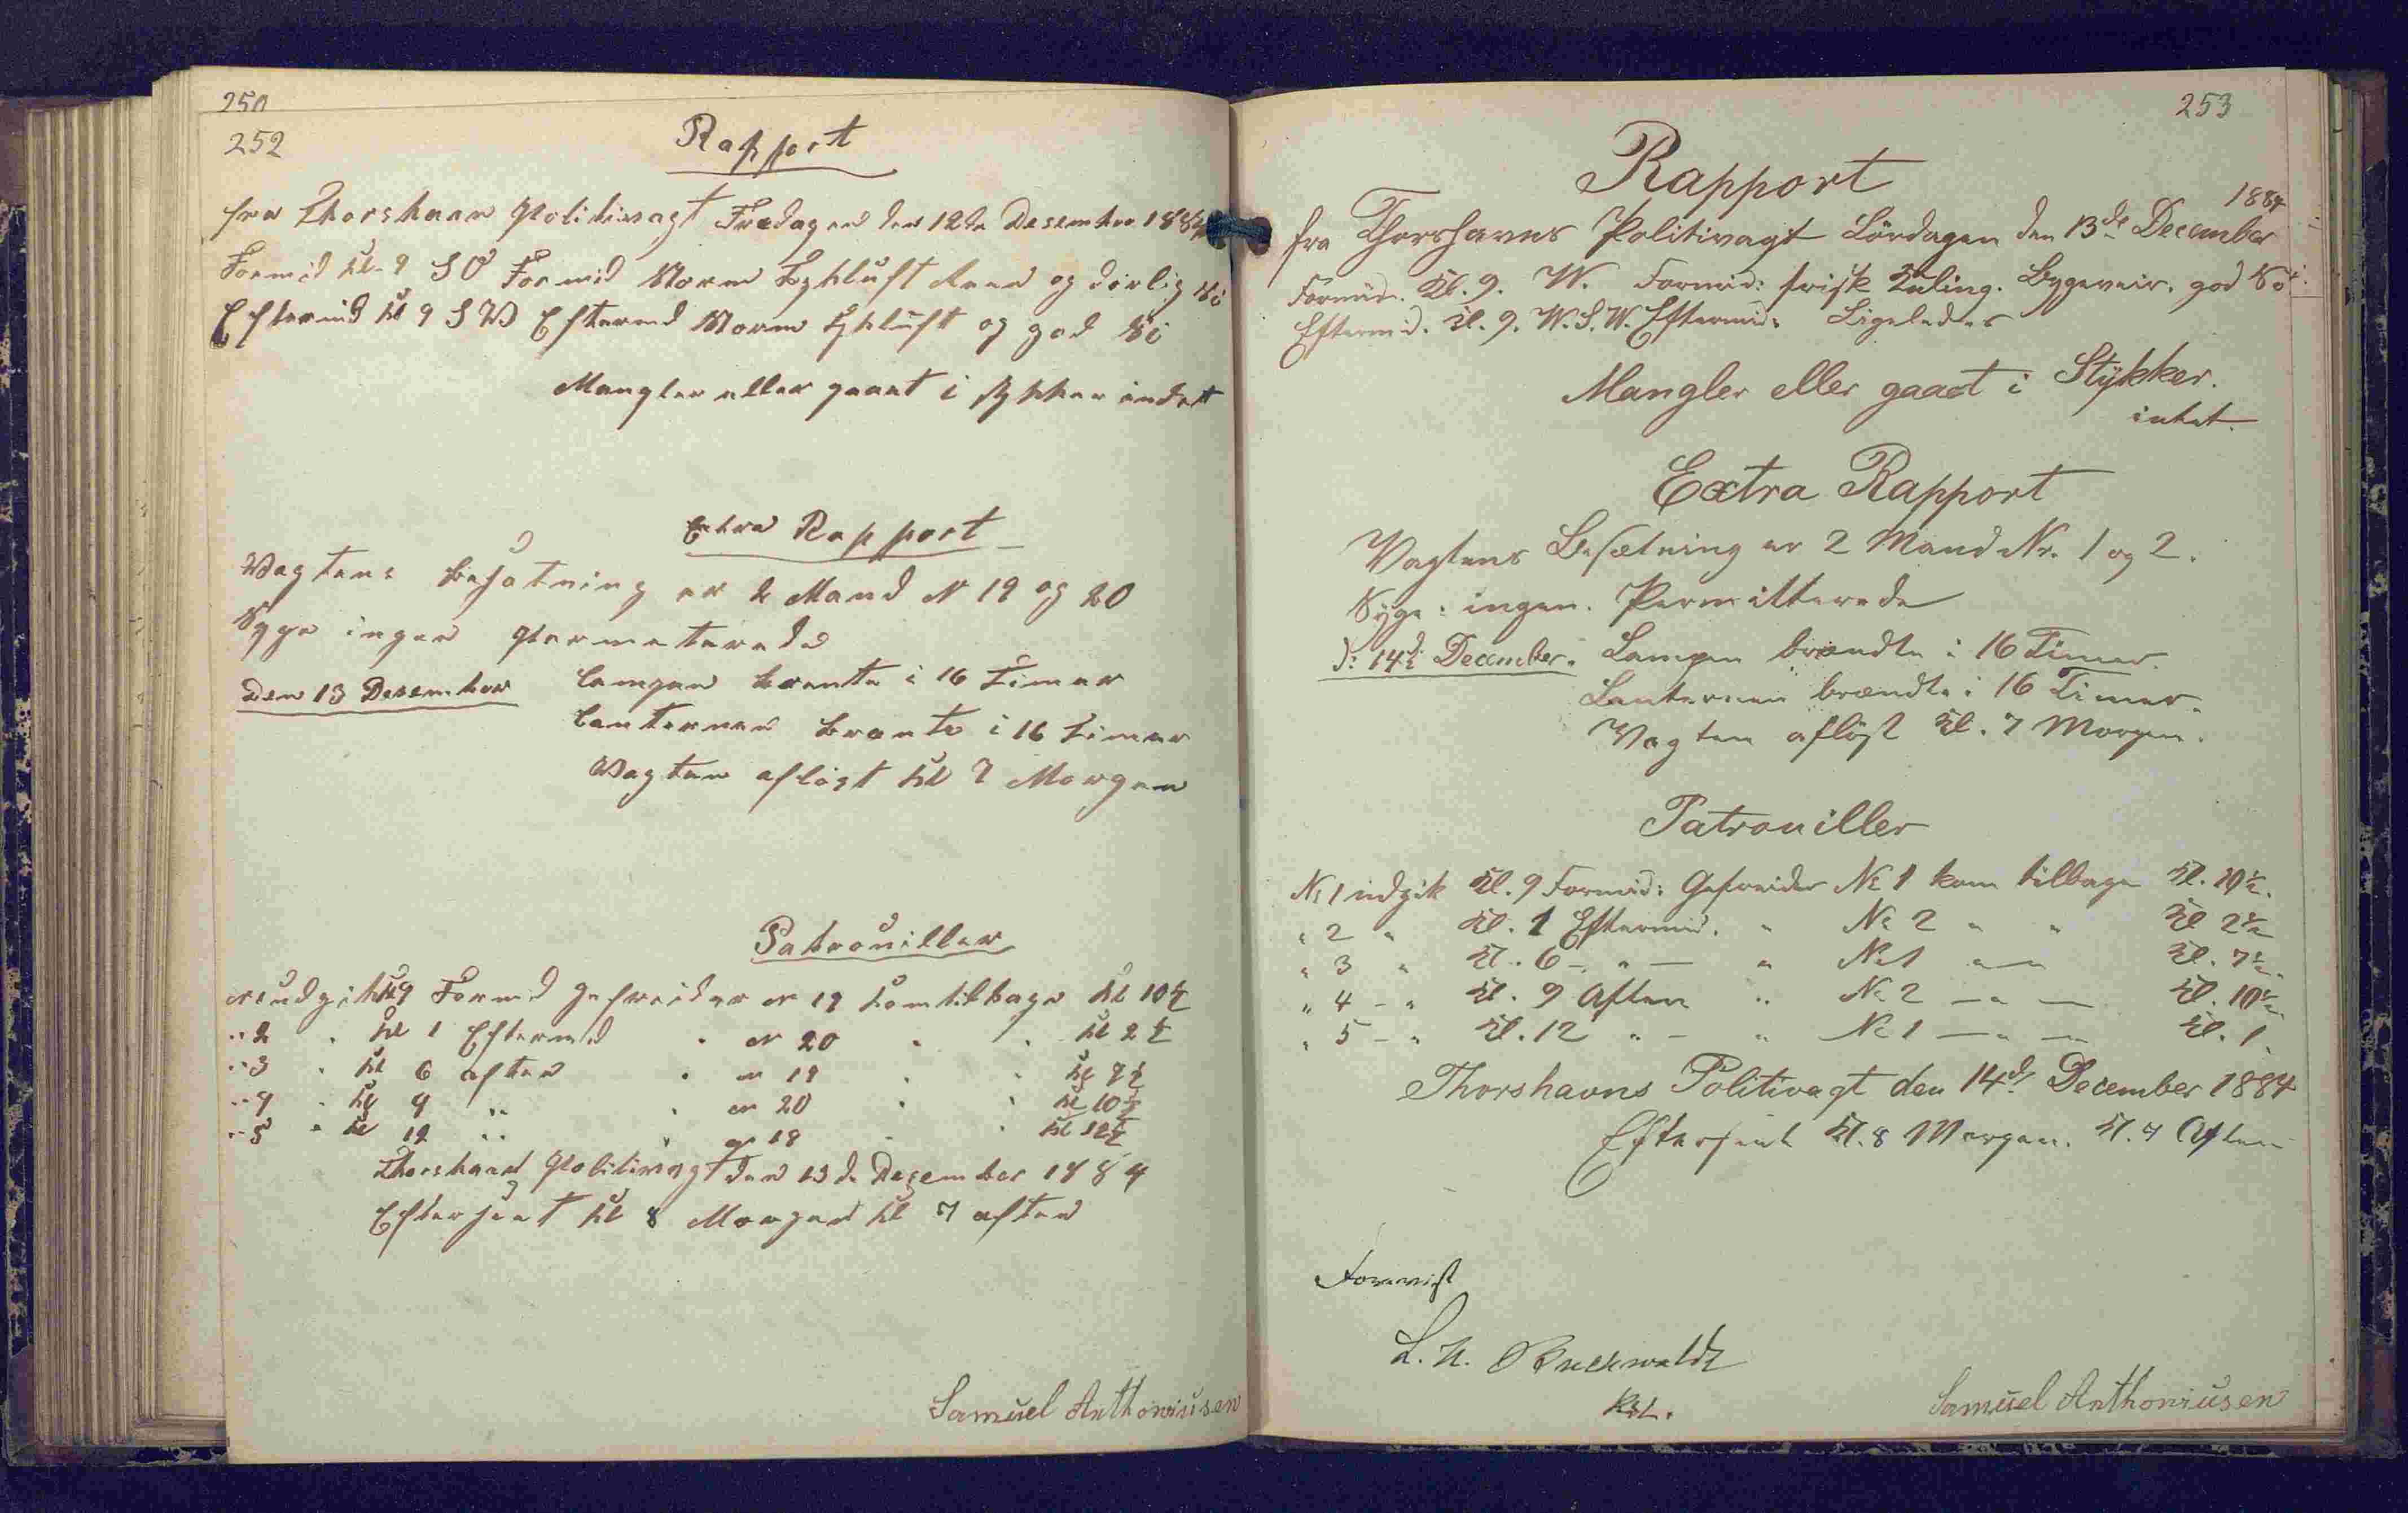 250
252
Rapport
fra Thorshavn Politivagt Fredagen den 12de Desember 1884
Formid kl. 9 S O Formid Storm Tykluft Regn og dorlig Si
Eftermid kl 9 S W Eftermd Storm Tykluft og god Si
Mangler eller gaaet i stykker indet
Extra Rapport
Vagtens besatning er 2 Mand N 19 og 20
Syge ingen permeterede
Den 13 Desember Lampen brante i 16 Timer
Lanternen brante i 16 Timer
Vagten aflöst kl 7 Morgen
Patrouiller
N 1 udgik kl 9 Formid Gefreider N 19 kom tilbage kl 10½
" 2 " kl 1 Eftermd " N 20 " " kl 2½
" 3 " kl 6 aften " N 19 " " kl 7½
" 4 " kl 9 " " N 20 " " kl 10½
" 5 " kl 12 " " N 19 " " kl 12½
Thorshavn Politivagt den 13de Desember 1884
Efterseet kl 8 Morgen kl 7 aften
Samuel Anthoniusen
253
Rapport
1884
fra Thorshavns Politivagt Lördagen den 13de December
Formid. Kl. 9. W. Formid: frisk Kuling. Bygeveir, god Sö.
Eftermid. Kl. 9. W.S.W. Eftermid: Ligeledes
Mangler eller gaaet i Stykker.
intet.
Extra Rapport
Vagtens Besætning er 2 Mand Nr. 1 og 2.
Syge: ingen. Permitterede
D: 14d December. Lampen brændte i 16 Timer.
Lanternen brændte i 16 Timer.
Vagten aflöst Kl. 7 Morgen.
Patrouiller
No 1 udgik Kl. 9 Formid: Gefreider No 1 kom tilbage Kl. 10½.
" 2 " Kl. 1 Eftermid. " No 2 " " Kl 2½
" 3 " Kl. 6 - " - " No 1 " Kl. 7½.
" 4 - " Kl. 9 Aften " No 2 - " - Kl. 10½
" 5 - " Kl. 12 " - " No 1 - " - Kl. 1.
Thorshavns Politivagt den 14d December 1884
Efterseet Kl. 8 Morgen. Kl. 7 Aften
Forevist
Samuel Anthoniusen